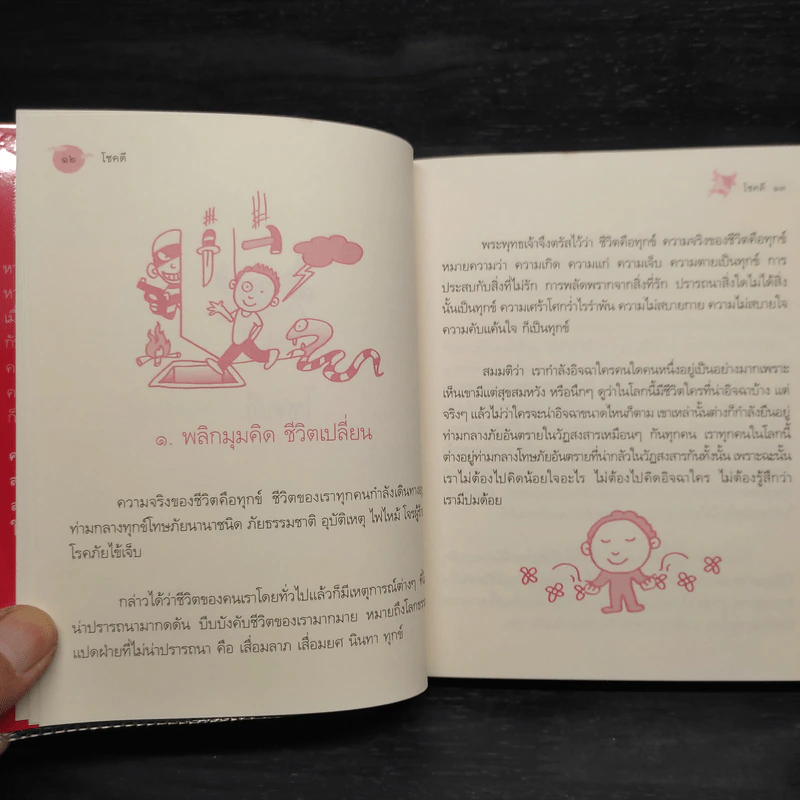 ๑๒ โชคดี
๑. พลิกมุมคิด ชีวิตเปลี่ยน
ความจริงของชีวิตคือทุกข์ ชีวิตของเราทุกคนกำลังเดินทาง
ท่ามกลางทุกข์โทษภัยนานาชนิด ภัยธรรมชาติ อุบัติเหตุ ไฟไหม้ โจรผู้ร้าย
โรคภัยไข้เจ็บ
กล่าวได้ว่าชีวิตของคนเราโดยทั่วไปแล้วก็มีเหตุการณ์ต่างๆ
น่าปรารถนามากดดัน บีบบังคับชีวิตของเรามากมาย หมายถึงโลกธรรม
แปดฝ่ายที่ไม่น่าปรารถนา คือ เสื่อมลาภ เสื่อมยศ นินทา ทุกข์
โชคดี ๑๓
พระพุทธเจ้าจึงตรัสไว้ว่า ชีวิตคือทุกข์ ความจริงของชีวิตคือทุกข์
หมายความว่า ความเกิด ความแก่ ความเจ็บ ความตายเป็นทุกข์ การ
ประสบกับสิ่งที่ไม่รัก การพลัดพรากจากสิ่งที่รัก ปรารถนาสิ่งใดไม่ได้สิ่ง
นั้นเป็นทุกข์ ความเศร้าโศกร่ำไรรำพัน ความไม่สบายกาย ความไม่สบายใจ
ความคับแค้นใจ ก็เป็นทุกข์
สมมติว่า เรากำลังอิจฉาใครคนใดคนหนึ่งอยู่เป็นอย่างมากเพราะ
เห็นเขามีแต่สุขสมหวัง หรือนึกๆ ดูว่าในโลกนี้มีชีวิตใครที่น่าอิจฉาบ้าง แต่
จริงๆ แล้วไม่ว่าใครจะน่าอิจฉาขนาดไหนก็ตาม เขาเหล่านั้นต่างก็กำลังยืนอยู่
ท่ามกลางภัยอันตรายในวัฏสงสารเหมือนๆ กันทุกคน เราทุกคนในโลกนี้
ต่างอยู่ท่ามกลางโทษภัยอันตรายที่น่ากลัวในวัฏสงสารกันทั้งนั้น เพราะฉะนั้น
เราไม่ต้องไปคิดน้อยใจอะไร ไม่ต้องไปคิดอิจฉาใคร ไม่ต้องรู้สึกว่า
เรามีปมด้อย